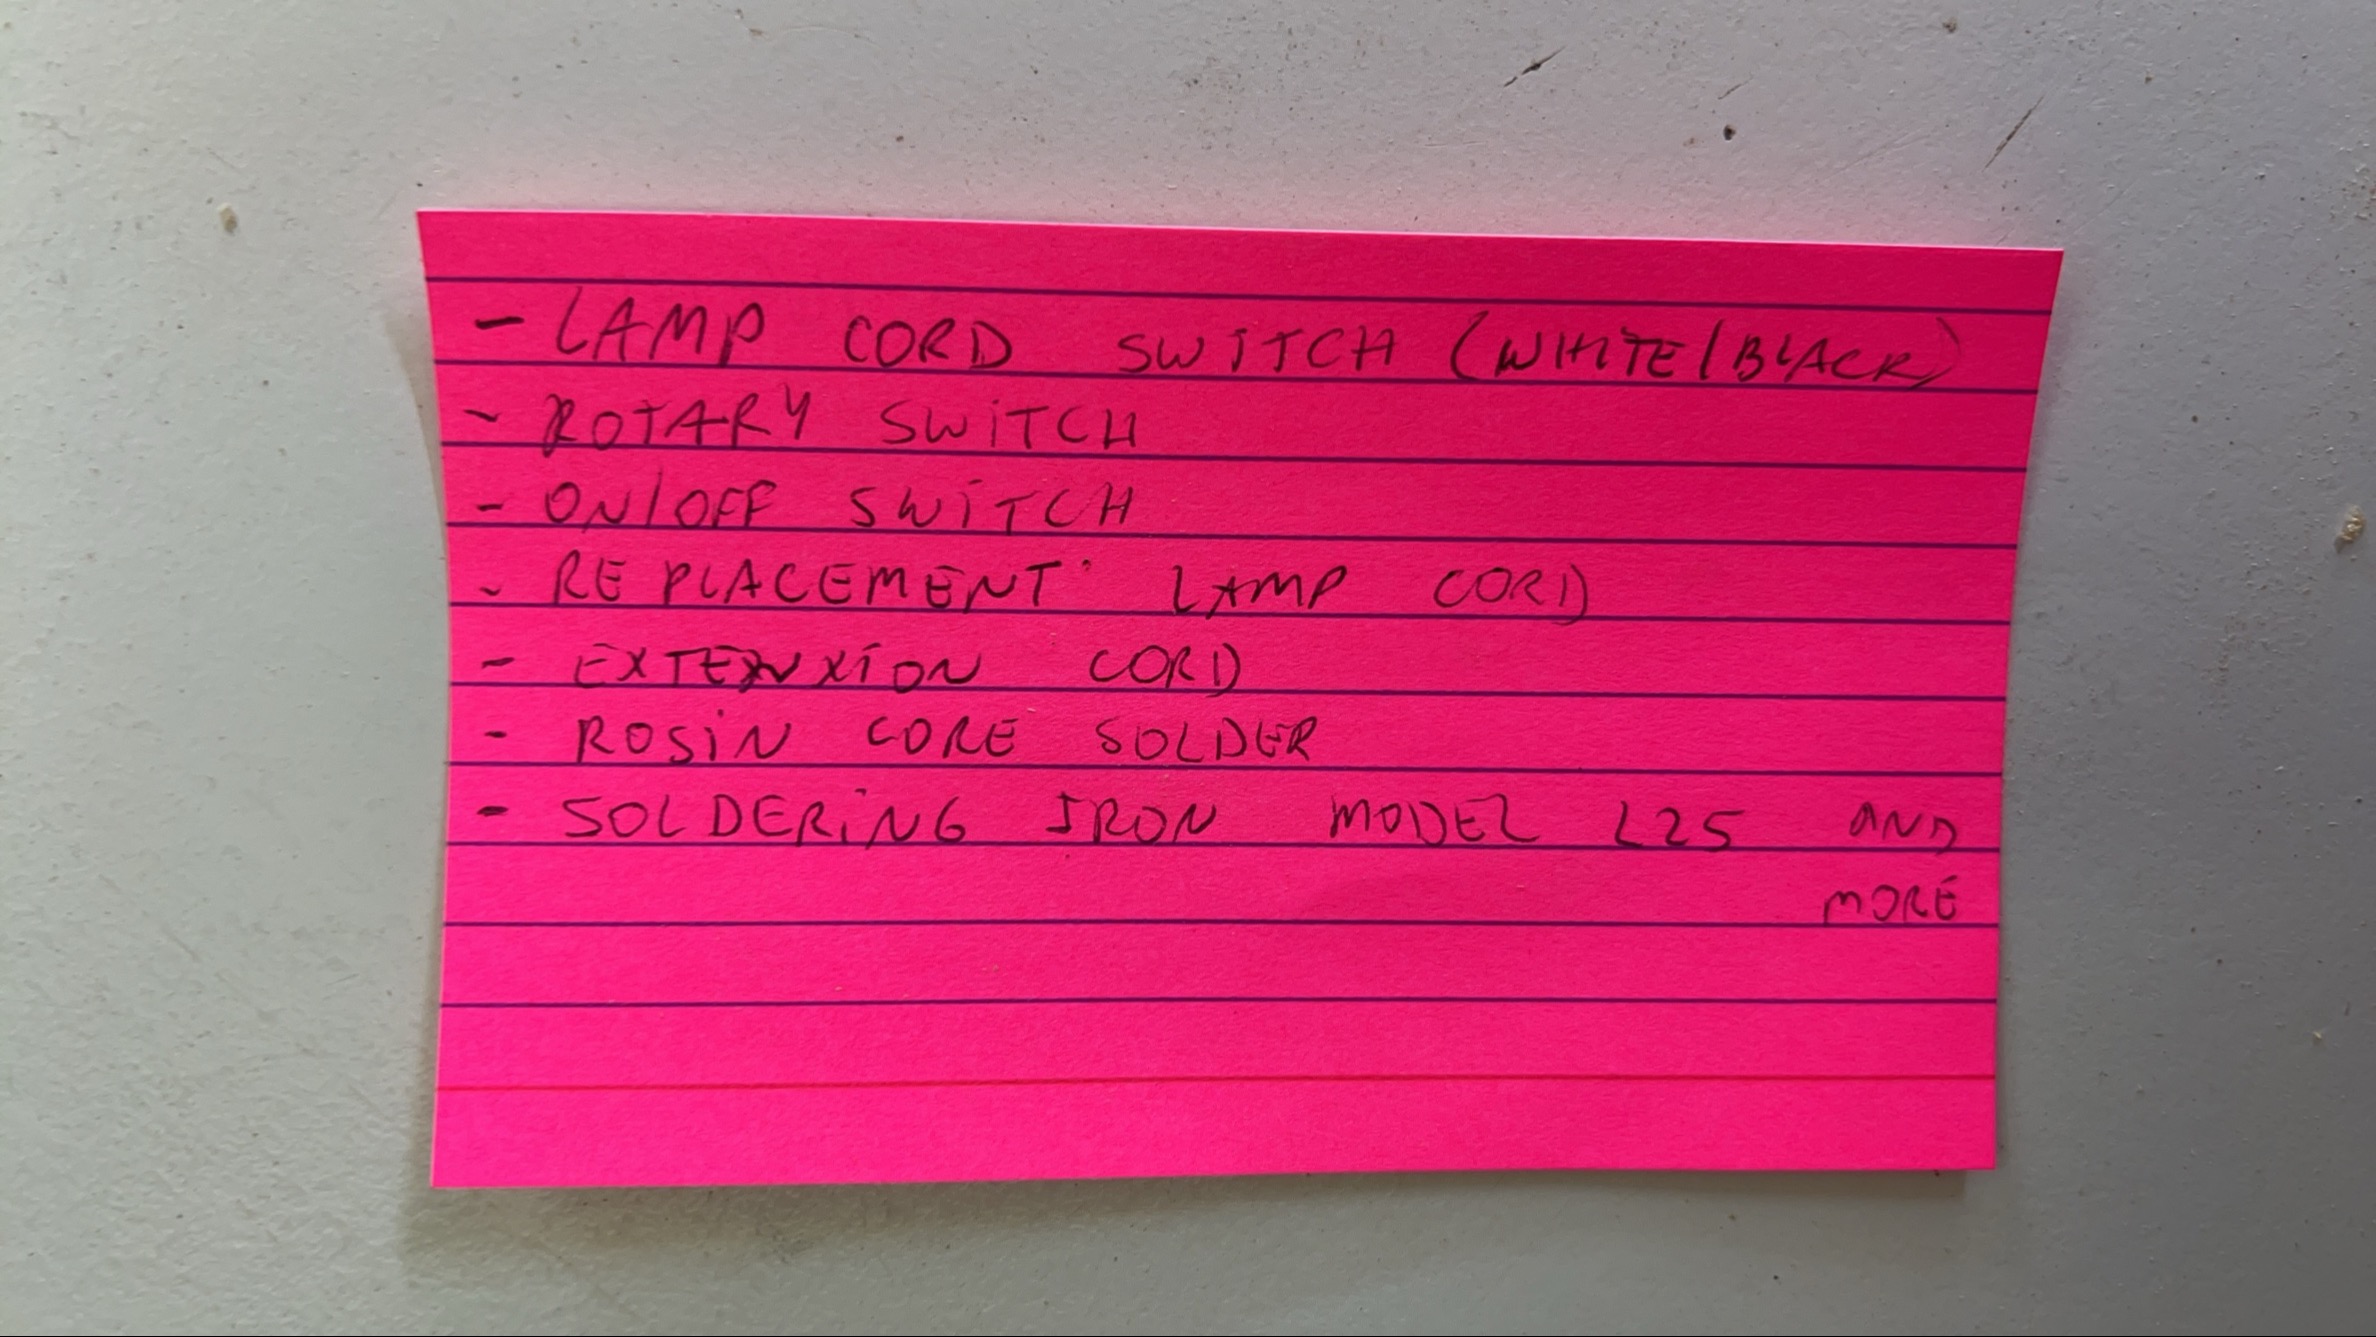 - LAMP CORD SWITCH (WHITE/BLACK)
- ROTARY SWITCH
- ON/OFF SWITCH
- REPLACEMENT LAMP CORD
- EXTENXION CORD
- ROSIN CORE SOLDER
- SOLDERING IRON MODEL L25 AND
MORE